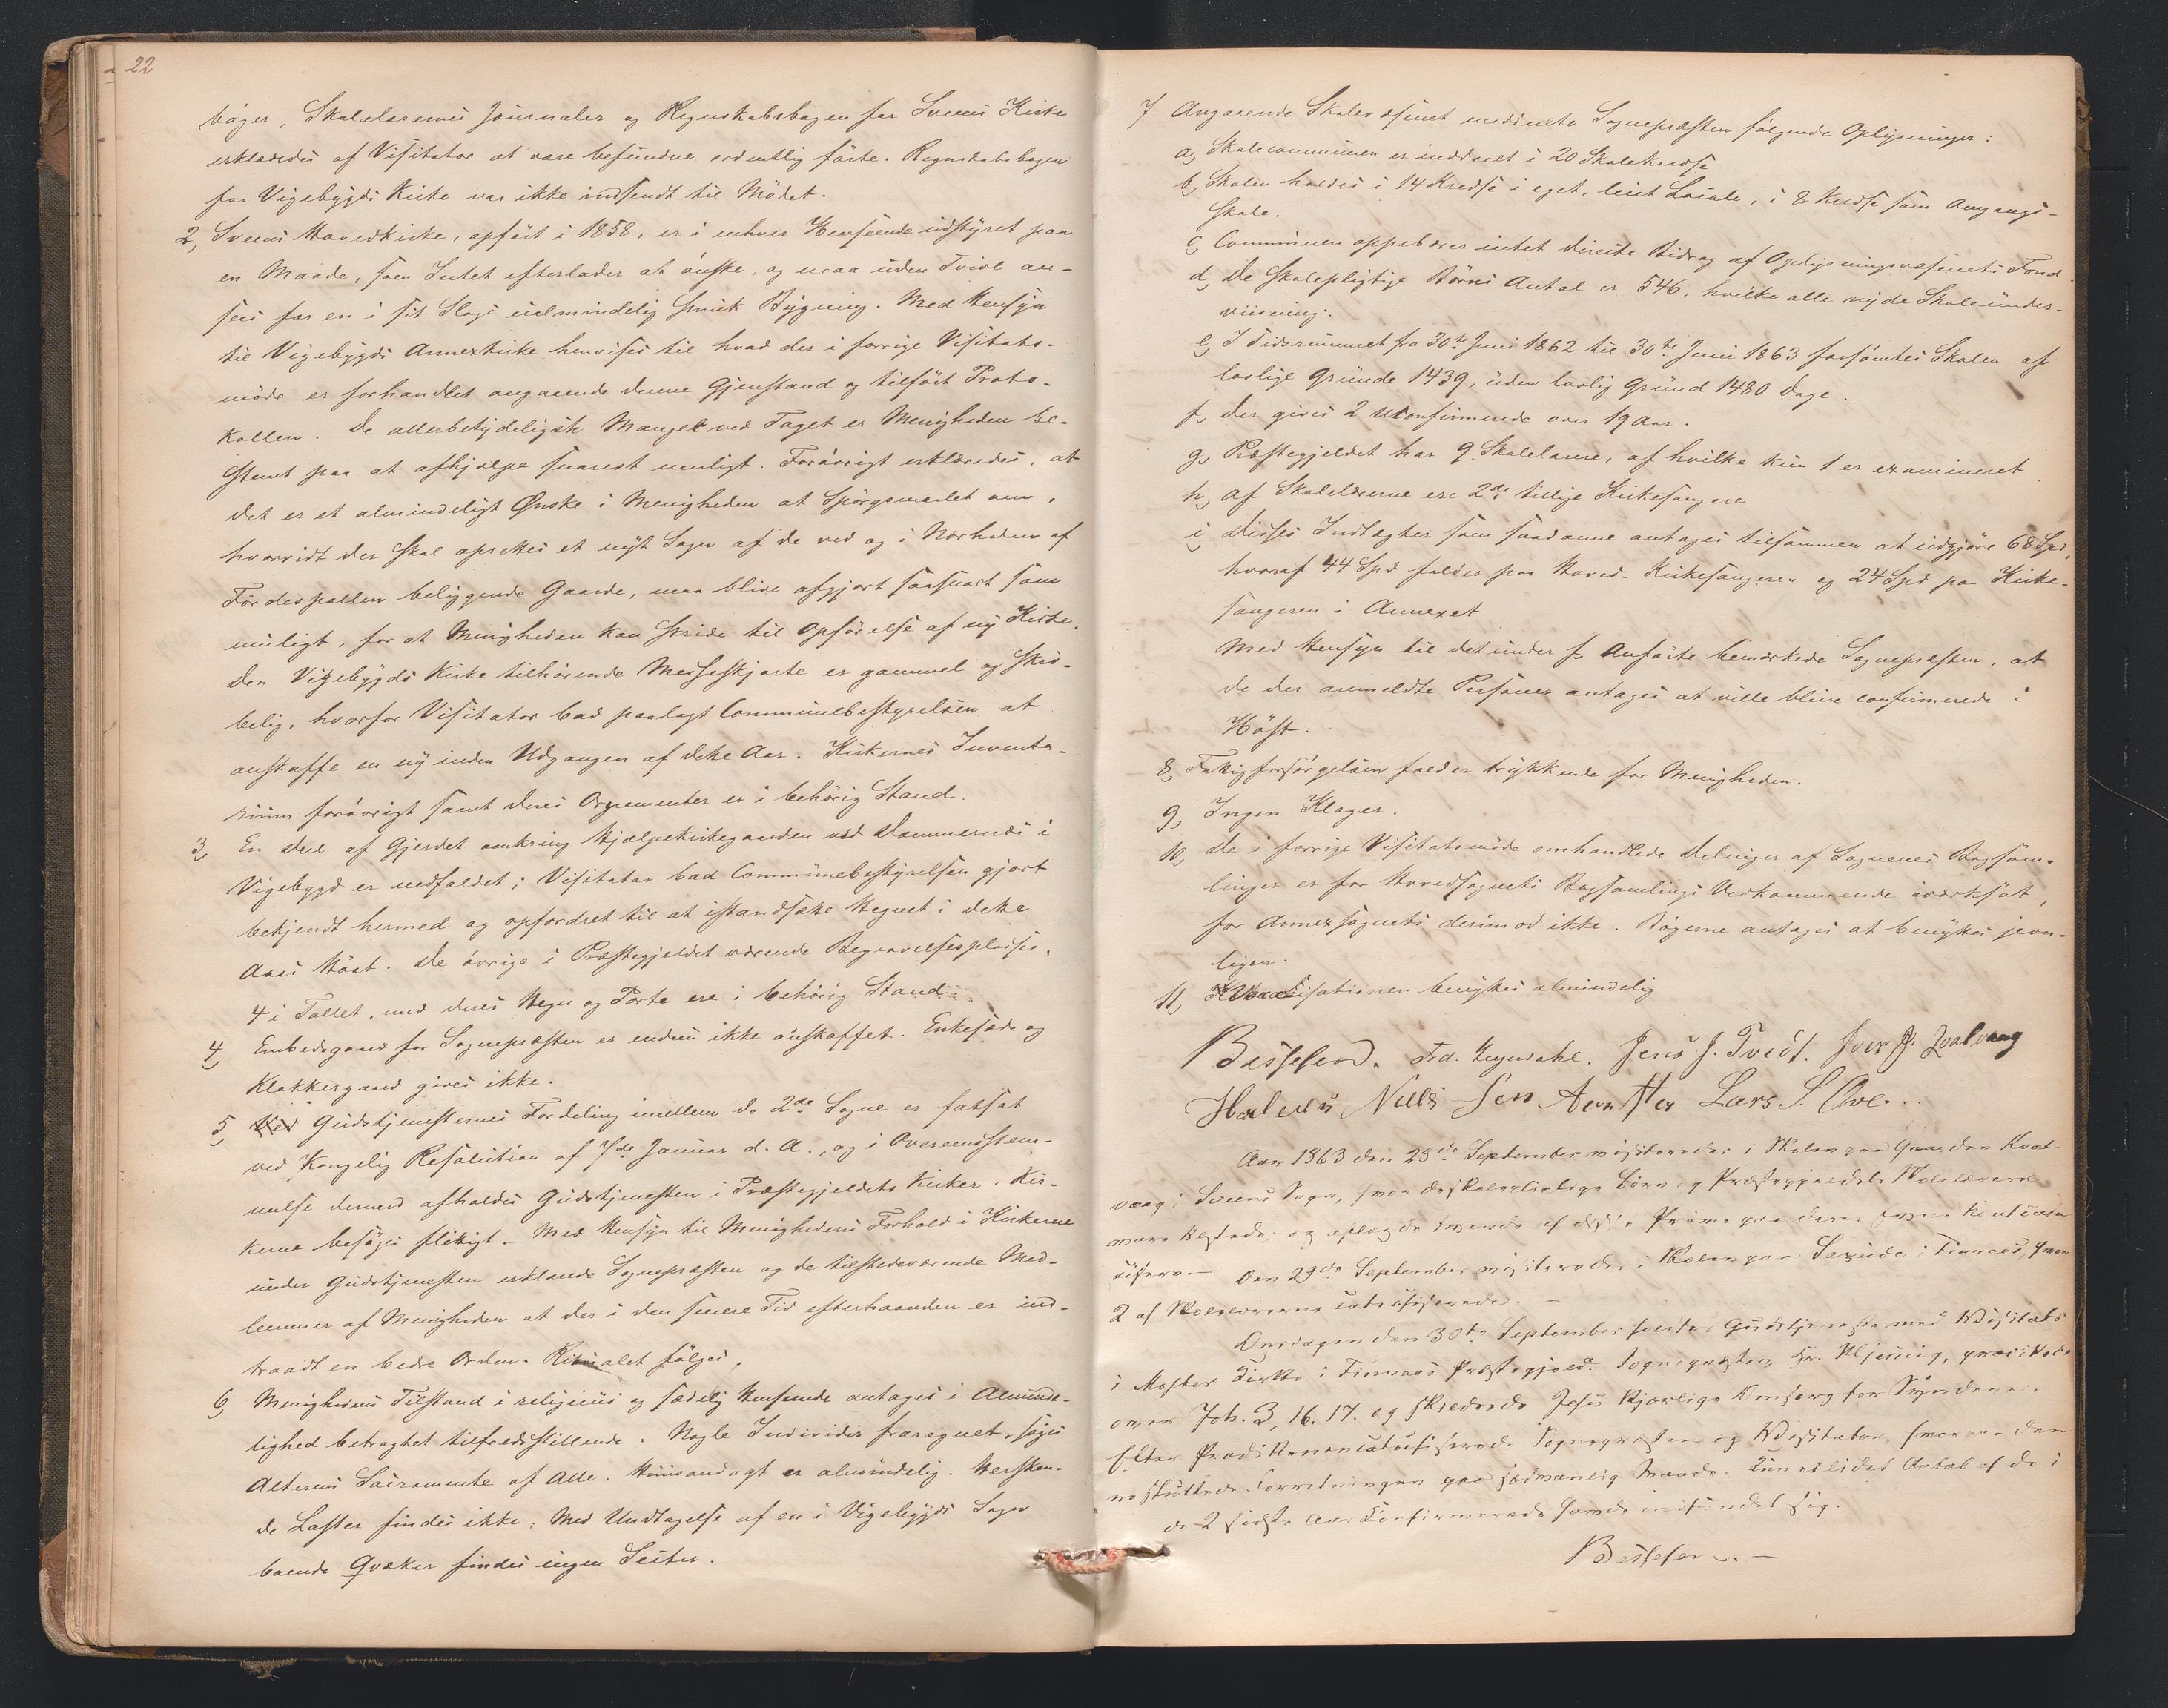 22
böger, Skolelærernes Journaler og Regnskabsbogen for Sveens Kirke
erklæredes af Visitator at være befundne ordentlig förte. Regnskabsbogen
for Vigebygds Kirke var ikke indsendt til Mödet.
2, Sveens Hovedkirke, opfört i 1858, er i enhver Henseende udstyret paa
en Maade, som Intet efterlader at önske, og maa uden Tvivl an-
sees for en i sit Slags ualmindelig smuk Bygning. Med Hensyn
til Vigebygds Annexkirke henvises til hvad der i forrige Visitats-
möde er forhandlet angaaende denne Gjenstand og tilfört Proto-
kollen. De allerbetydeligste Mangel ved Taget er Menigheden be-
stemt paa at afhjælpe snarest muligt. Forövrigt erklæredes, at
det er et almindeligt Ønske i Menigheden at Spörgsmaalet om,
hvorvidt der skal oprettes et nyt Sogn af de ved og i Nærheden af
Fördespollen beliggende Gaarde, maa blive afgjort saasnart som
muligt, for at Menigheden kan skride til Opförelse af ny Kirke.
Den Vigebygds Kirke tilhörende Messeskjorte er gammel og skrö-
belig, hvorfor Visitator bad paalagt Communebestyrelsen at
anskaffe en ny inden Udgangen af dette Aar. Kirkernes Inventa-
rium forövrigt samt deres Ornamenter er i behörig Stand.
3, En Deel af Gjerdet omkring Hjælpekirkegaarden ved Dommersnæs i
Vigebygd er nedfaldet; Visitator bad Communebestyrelsen gjort
bekjendt hermed og opfordret til at istandsætte Hegnet i dette
Aars Höst. De övrige i Præstegjeldet værende Begravelsespladse,
4 i Tallet, med deres Hegn og Porte ere i behörig Stand.
4, Embedsgaard for Sognepræsten er endnu ikke anskaffet. Enkesæde og
Klokkergaard gives ikke.
5, Gudstjenesternes Fordeling imellem de 2de Sogne er fastsat
ved Kongelig Resolution af 7de Januar d. A., og i Overensstem-
melse dermed afholdes Gudstjenesten i Præstegjeldets Kirker. Kir-
kerne besöges flittigt. Med Hensyn til Menighedens Forhold i Kirkerne
under Gudstjenesten erklærede Sognepræsten og de tilstedeværende Med-
lemmer af Menigheden at der i den senere Tid efterhaanden er ind-
traadt en bedre Orden. Ritualet fölges.
6, Menighedens Tilstand i religieus og sædelig Henseende antages i Alminde-
lighed betragtet tilfredsstillende. Nogle Individer fraregnet, söges
Alterens Sacramente af Alle. Huusandagt er almindelig. Herskende
Laster findes ikke. Med Undtagelse af en i Vigebygds Sogn
boende Qvæker findes ingen Secter.
7. Angaaende Skolevæsenet meddeelte Sognepræsten fölgende Oplysninger:
a, Skolecommunen er inddeelt i 20 Skolekredse
b, Skolen holdes i 14 Kredse i eget, leiet Locale, i 8 Kredse som Omgangs-
skole.
c, Communen oppebærer intet directe Bidrag af Oplysningsvæsenets Fond.
d, De skolepligtige Börns Antal er 546, hvilke alle nyde Skoleunder-
viisning.
e, I Tidsrummet fra 30te Juni 1862 til 30te Juni 1863 forsömtes Skolen af
lovlige Grunde 1439, uden lovlig Grund 1480 Dage.
f, Der gives 2 Uconfirmerede over 19 Aar.
g, Præstegjeldet har 9 Skolelærere, af hvilke kun 1 er examineret
h, Af Skolelærerne ere 2de tillige Kirkesangere
i, Disses Indtægter som saadanne antages tilsammen at udgjöre 68 Spd,
hvoraf 44 Spd falder paa Hoved-Kirkesangeren og 24 Spd paa Kirke-
sangeren i Annexet
Med Hensyn til det under f, Anförte bemærkede Sognepræsten, at
de der anmeldte Personer antages at ville blive confirmerede i
Höst.
8, Fattigforsörgelsen falder trykkende for Menigheden.
9, Ingen Klager.
10, De i forrige Visitatsmöde omhandlede Delinger af Sognenes Bogsam-
linger er for Hovedsognets Bogsamlings Vedkommende iværksat,
for Annexsognets derimod ikke. Bögerne antages at benyttes jevn-
ligen.
11, Vaccinationen benyttes almindelig
Jens J. Tvedt.
Lars S.
Aar 1863 den 28de September visiteredes i Skolen paa Gaarden
vaag i Sveens Sogn, hvor de skolepligtige Börn og Præstegjeldets Skolelærere
vare tilstede, og aflagde
Den 29de September visiteredes i Skolen paa i Finnaas, hvor
2 af Skolelærerne catechiserede.
Onsdagen den 30te September holdtes Gudstjeneste med Visitats
i Moster Kirke i Finnaas Præstegjeld. Sognepræsten, Hr. prædikede
over Joh. 3, 16. 17. og skildrede Jesu kjærlige Omsorg for Synderne.
Efter Prædikenen catechiserede Sognepræsten og Visitator, hvorpaa den
sluttede Forretningen paa sædvanlig Maade. Kun et lidet Antal af de i
de 2 sidste Aar Confirmerede havde indfundet sig.